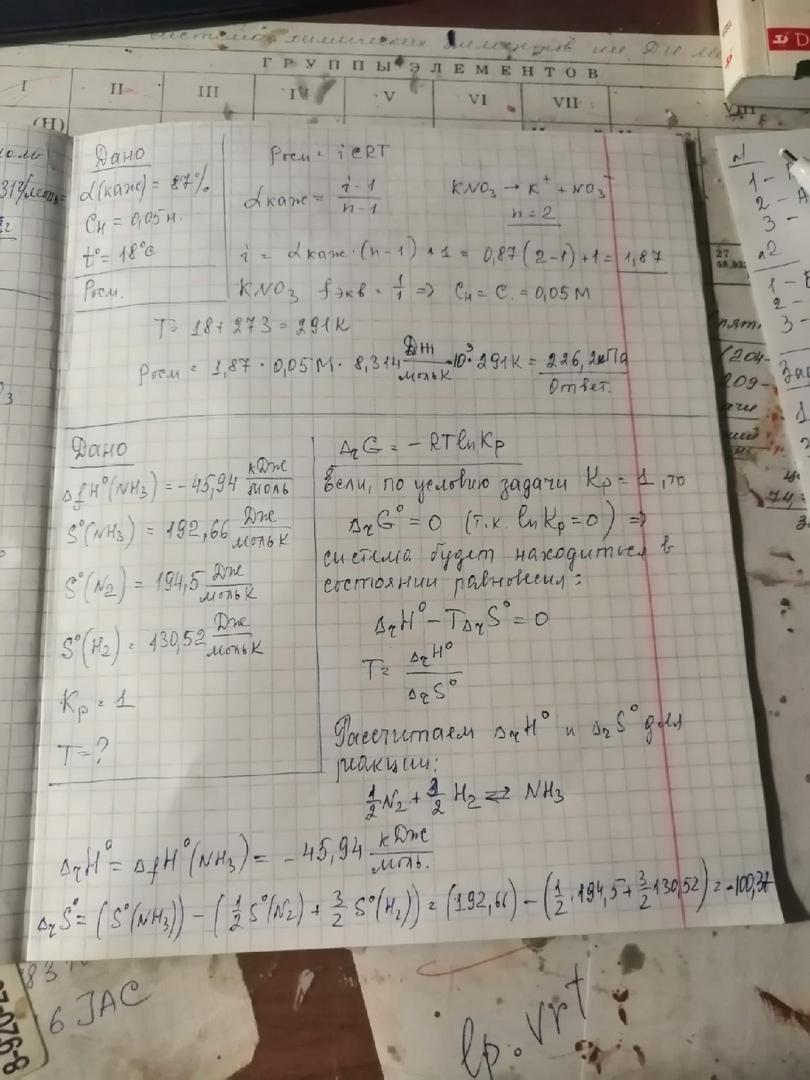 система химических элементов им. Д.И.
ГРУППЫ ЭЛЕМЕНТОВ
I II III IV V VI VII VIII
(H)
Дано
α(каж) = 87%
Cн = 0,05 н.
t° = 18°C
Pосм.
Pосм = iCRT
αкаж = (i-1)/(n-1)
KNO3 → K⁺ + NO3⁻
n=2
i = αкаж·(n-1)+1 = 0,87(2-1)+1 = 1,87
KNO3 fэкв = 1/1 => Cн = C = 0,05 M
T = 18+273 = 291K
Pосм = 1,87 · 0,05M · 8,314 Дж/мольK · 10³ · 291K = 226,2кПа
Ответ.
Дано
ΔfH°(NH3) = -45,94 кДж/моль
S°(NH3) = 192,66 Дж/мольK
S°(N2) = 194,5 Дж/мольK
S°(H2) = 130,52 Дж/мольK
Kp = 1
T = ?
ΔrG = -RTlnKp
Если, по условию задачи Kp = 1, то
ΔrG° = 0 (т.к. lnKp = 0) =>
система будет находиться в
состоянии равновесия:
ΔrH° - TΔrS° = 0
T = ΔrH°/ΔrS°
Рассчитаем ΔrH° и ΔrS° для
реакции:
1/2 N2 + 3/2 H2 ⇄ NH3
ΔrH° = ΔfH°(NH3) = -45,94 кДж/моль.
ΔrS° = (S°(NH3)) - (1/2 S°(N2) + 3/2 S°(H2)) = (192,66) - (1/2 · 194,5 + 3/2 130,52) = -100,37
27
(204-
209-
1 -
2 - A
3 -
1 -
2 -
3 -
6 JAC
lp. vrt